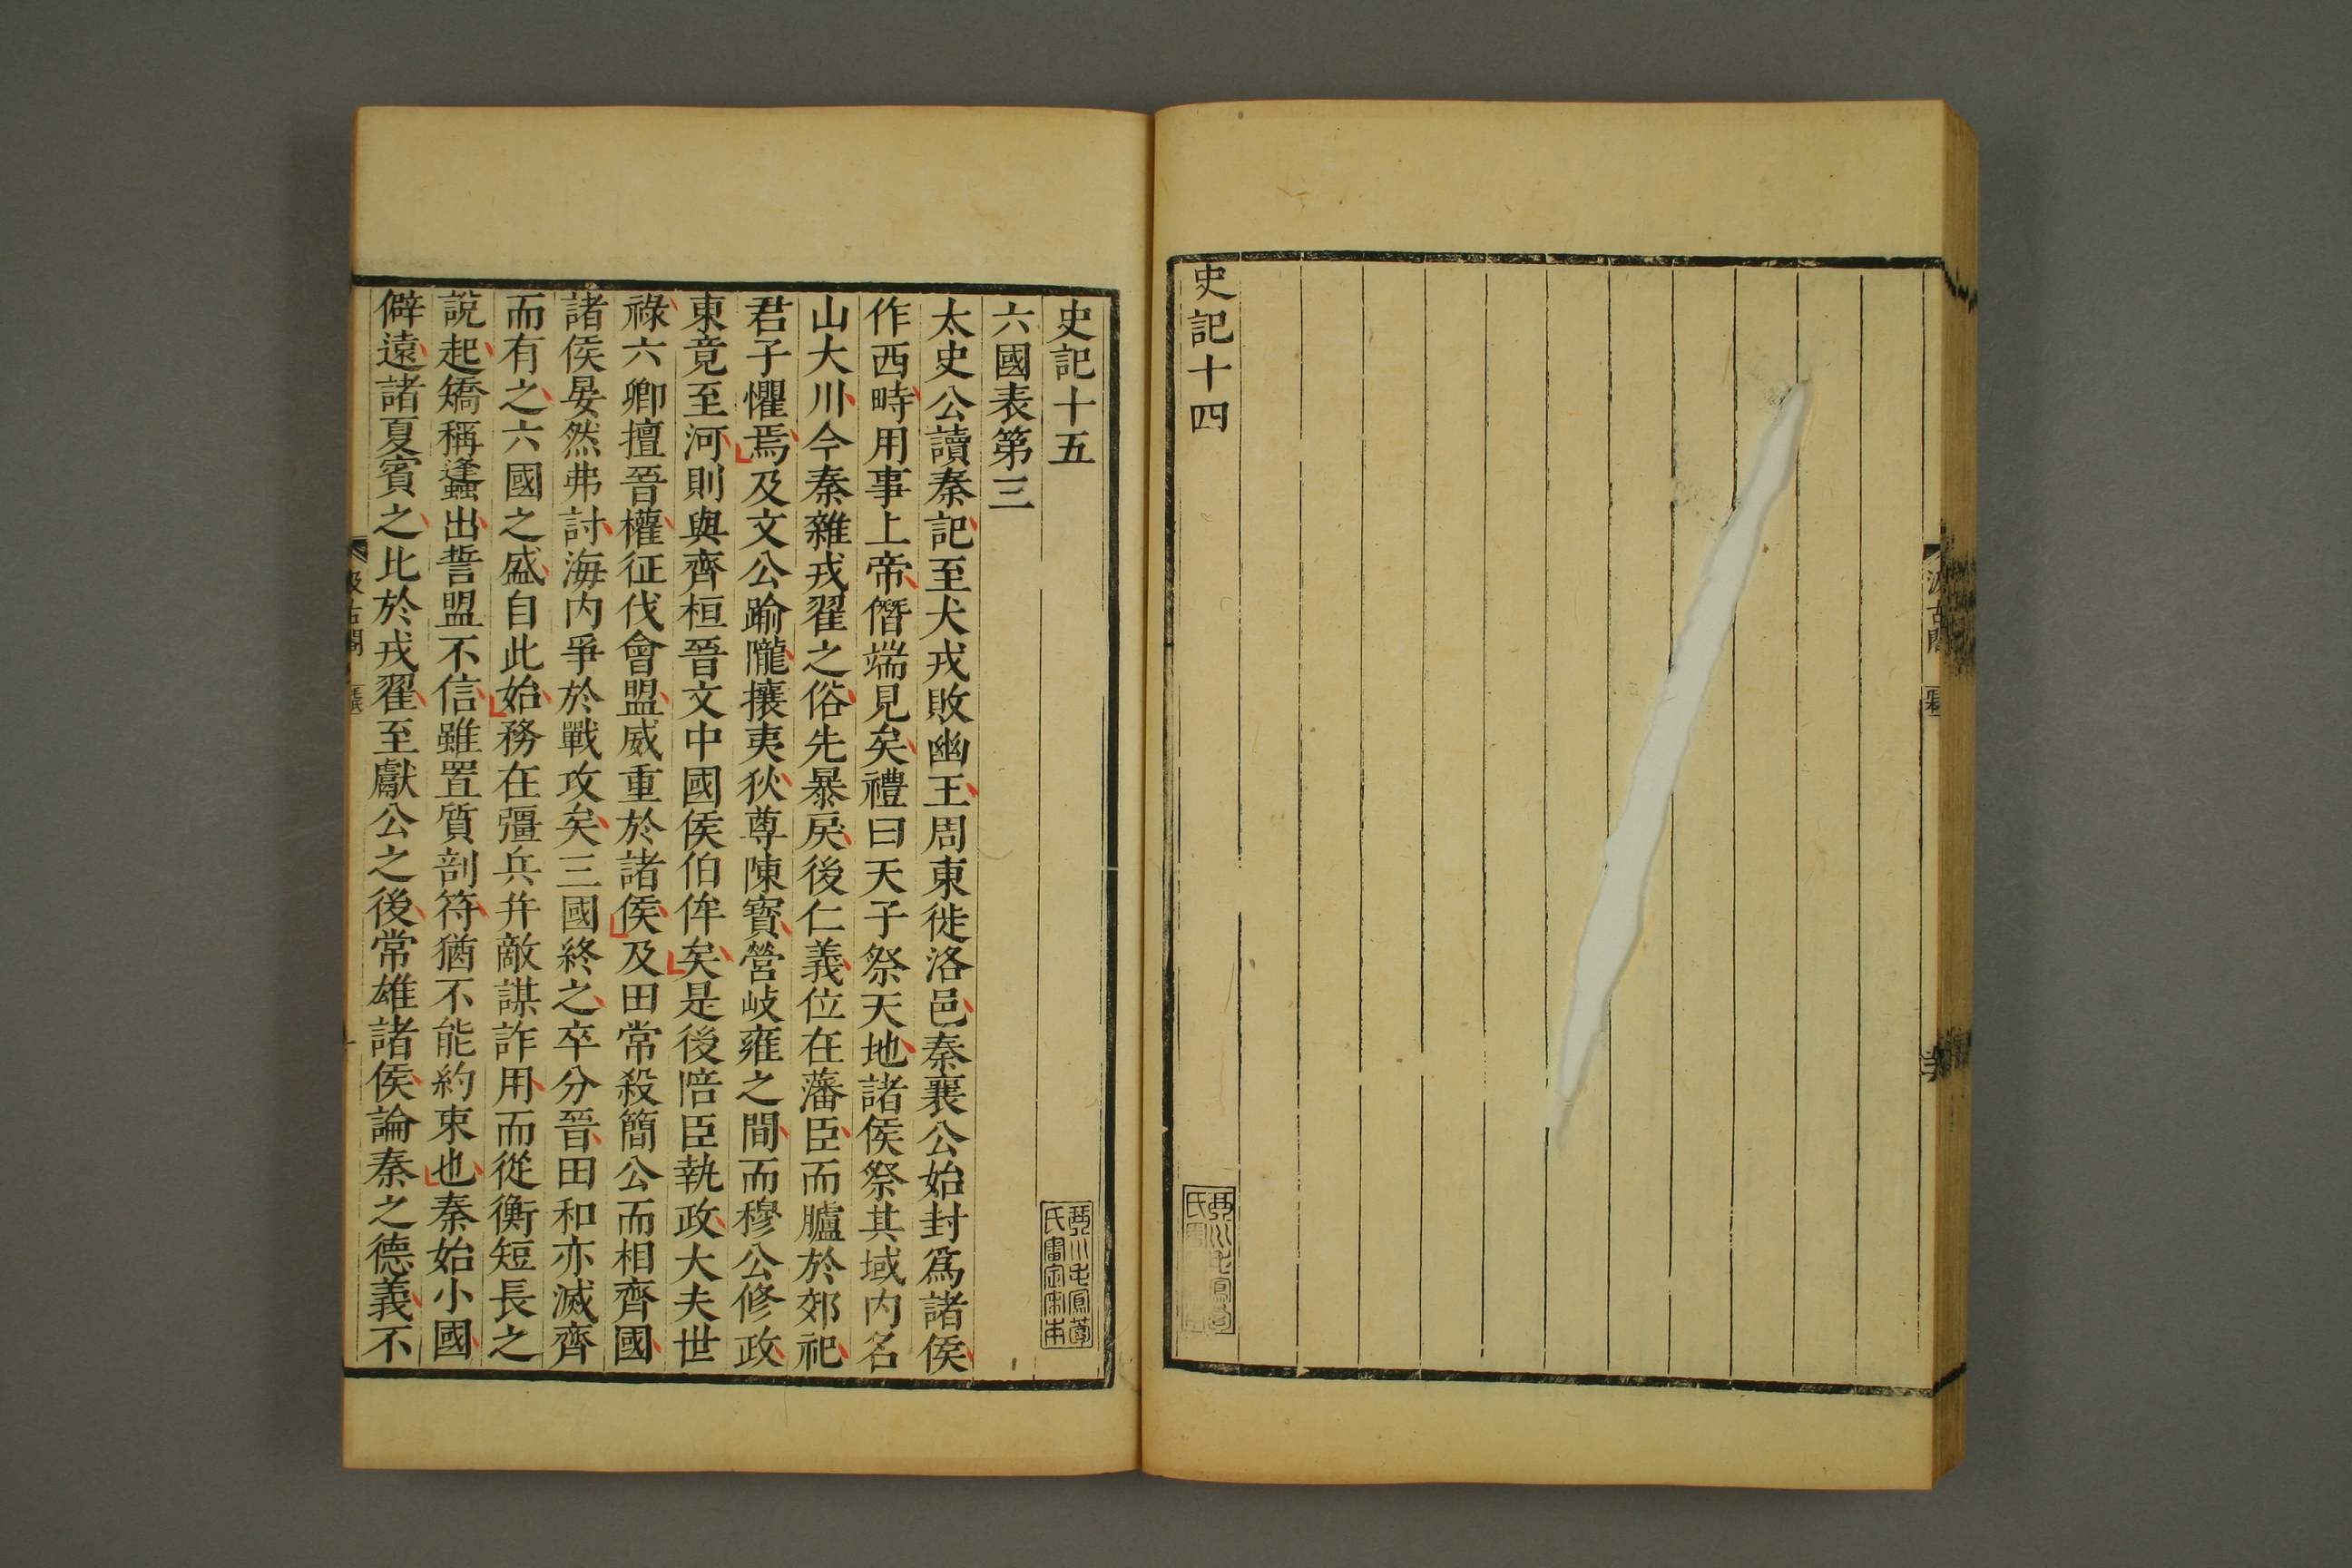 史記十四
史記十五
六國表第三
太史公讀秦記至犬戎敗幽王周東徙洛邑秦襄公始封爲諸侯
作西畤用事上帝僭端見矣禮曰天子祭天地諸侯祭其域内名
山大川今秦雜戎翟之俗先暴戾後仁義位在藩臣而臚於郊祀
君子懼焉及文公踰隴攘夷狄尊陳寳營岐雍之間而穆公修政
東竟至河則與齊桓晉文中國侯伯侔矣是後陪臣執政大夫世
祿六卿擅晉權征伐會盟威重於諸侯及田常殺簡公而相齊國
諸侯晏然弗討海内爭於戰攻矣三國終之卒分晉田和亦滅齊
而有之六國之盛自此始務在彊兵并敵謀詐用而從衡短長之
說起矯稱蠭出誓盟不信雖置質剖符猶不能約束也秦始小國
僻遠諸夏賓之比於戎翟至獻公之後常雄諸侯論秦之德義不